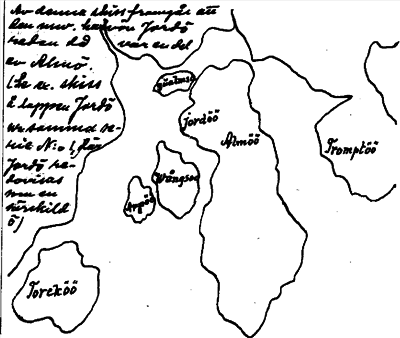 Av denna skiss framgår att
den nuv. halvön Jordö
redan då var en del
av Almö.
(Se ex. skiss
å lappen Jordö
samma se-
rie N:o 1, där
Jordö re-
dovisas
som en
särskild
ö)
Jordöö
Almöö
Tromptöö
Wångsöö
Arpöö
Torcköö